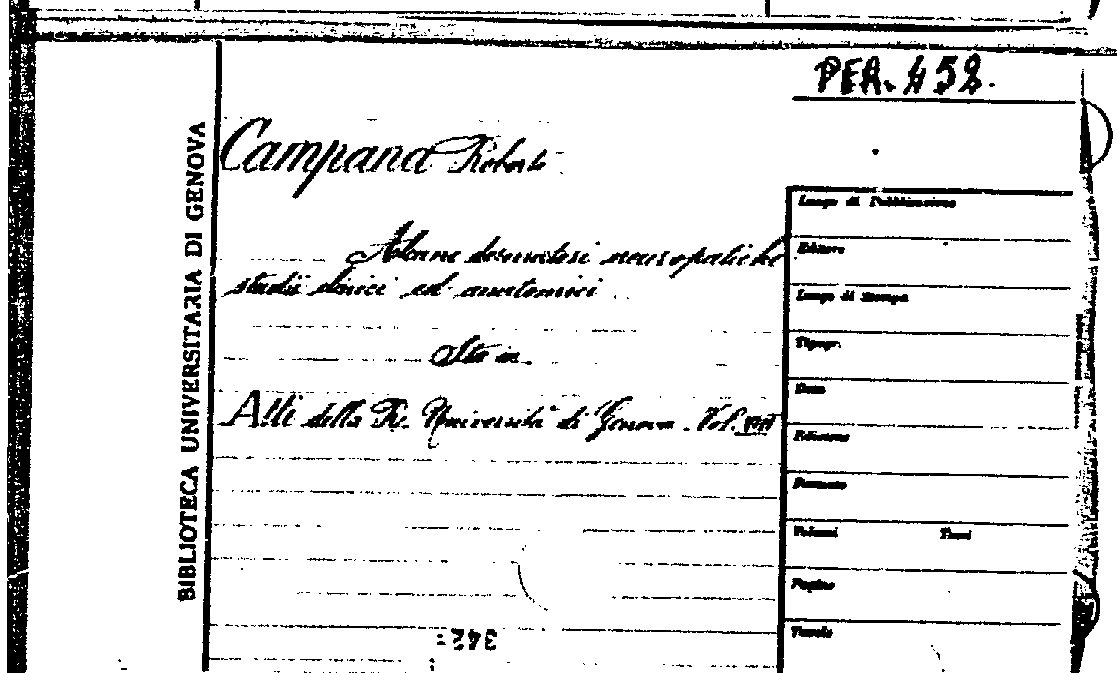 PER. 458.
BIBLIOTECA UNIVERSITARIA DI GENOVA
Campana Roberto
Alcune dermatosi neuropatiche
studii clinici ed anatomici
Sta in
Atti della R. Università di Genova. Vol.
Luogo di Pubblicazione
Editore
Luogo di Stampa
Tipogr.
Data
Edizione
Formato
Volumi Tomi
Pagine
Tavole
342